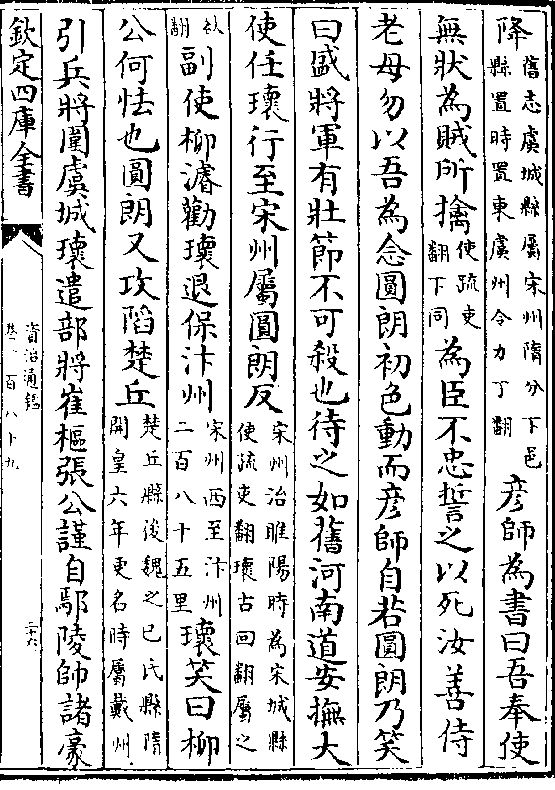 降舊志虞城縣屬宋州隋分下邑
縣置時置東虞州令力丁翻彦師為書曰吾奉使
無狀為賊所擒使疏吏
翻下同為臣不忠誓之以死汝善侍
老母勿以吾為念圓朗初色動而彦師自若圓朗乃笑
曰盛將軍有壯節不可殺也待之如舊河南道安撫大
使任瓌行至宋州屬圓朗反宋州治睢陽時為宋城縣
使疏吏翻瓌古回翻屬之
欲
翻副使柳濬勸瓌退保汴州宋州西至汴州
二百八十五里瓌笑曰柳
公何怯也圓朗又攻陷楚丘楚丘縣後魏之已氏縣隋
開皇六年更名時屬戴州
引兵將圍虞城瓌遣部將崔樞張公謹自鄢陵帥諸豪
欽定四庫全書
資治通鑑
卷一百八十九
二十六